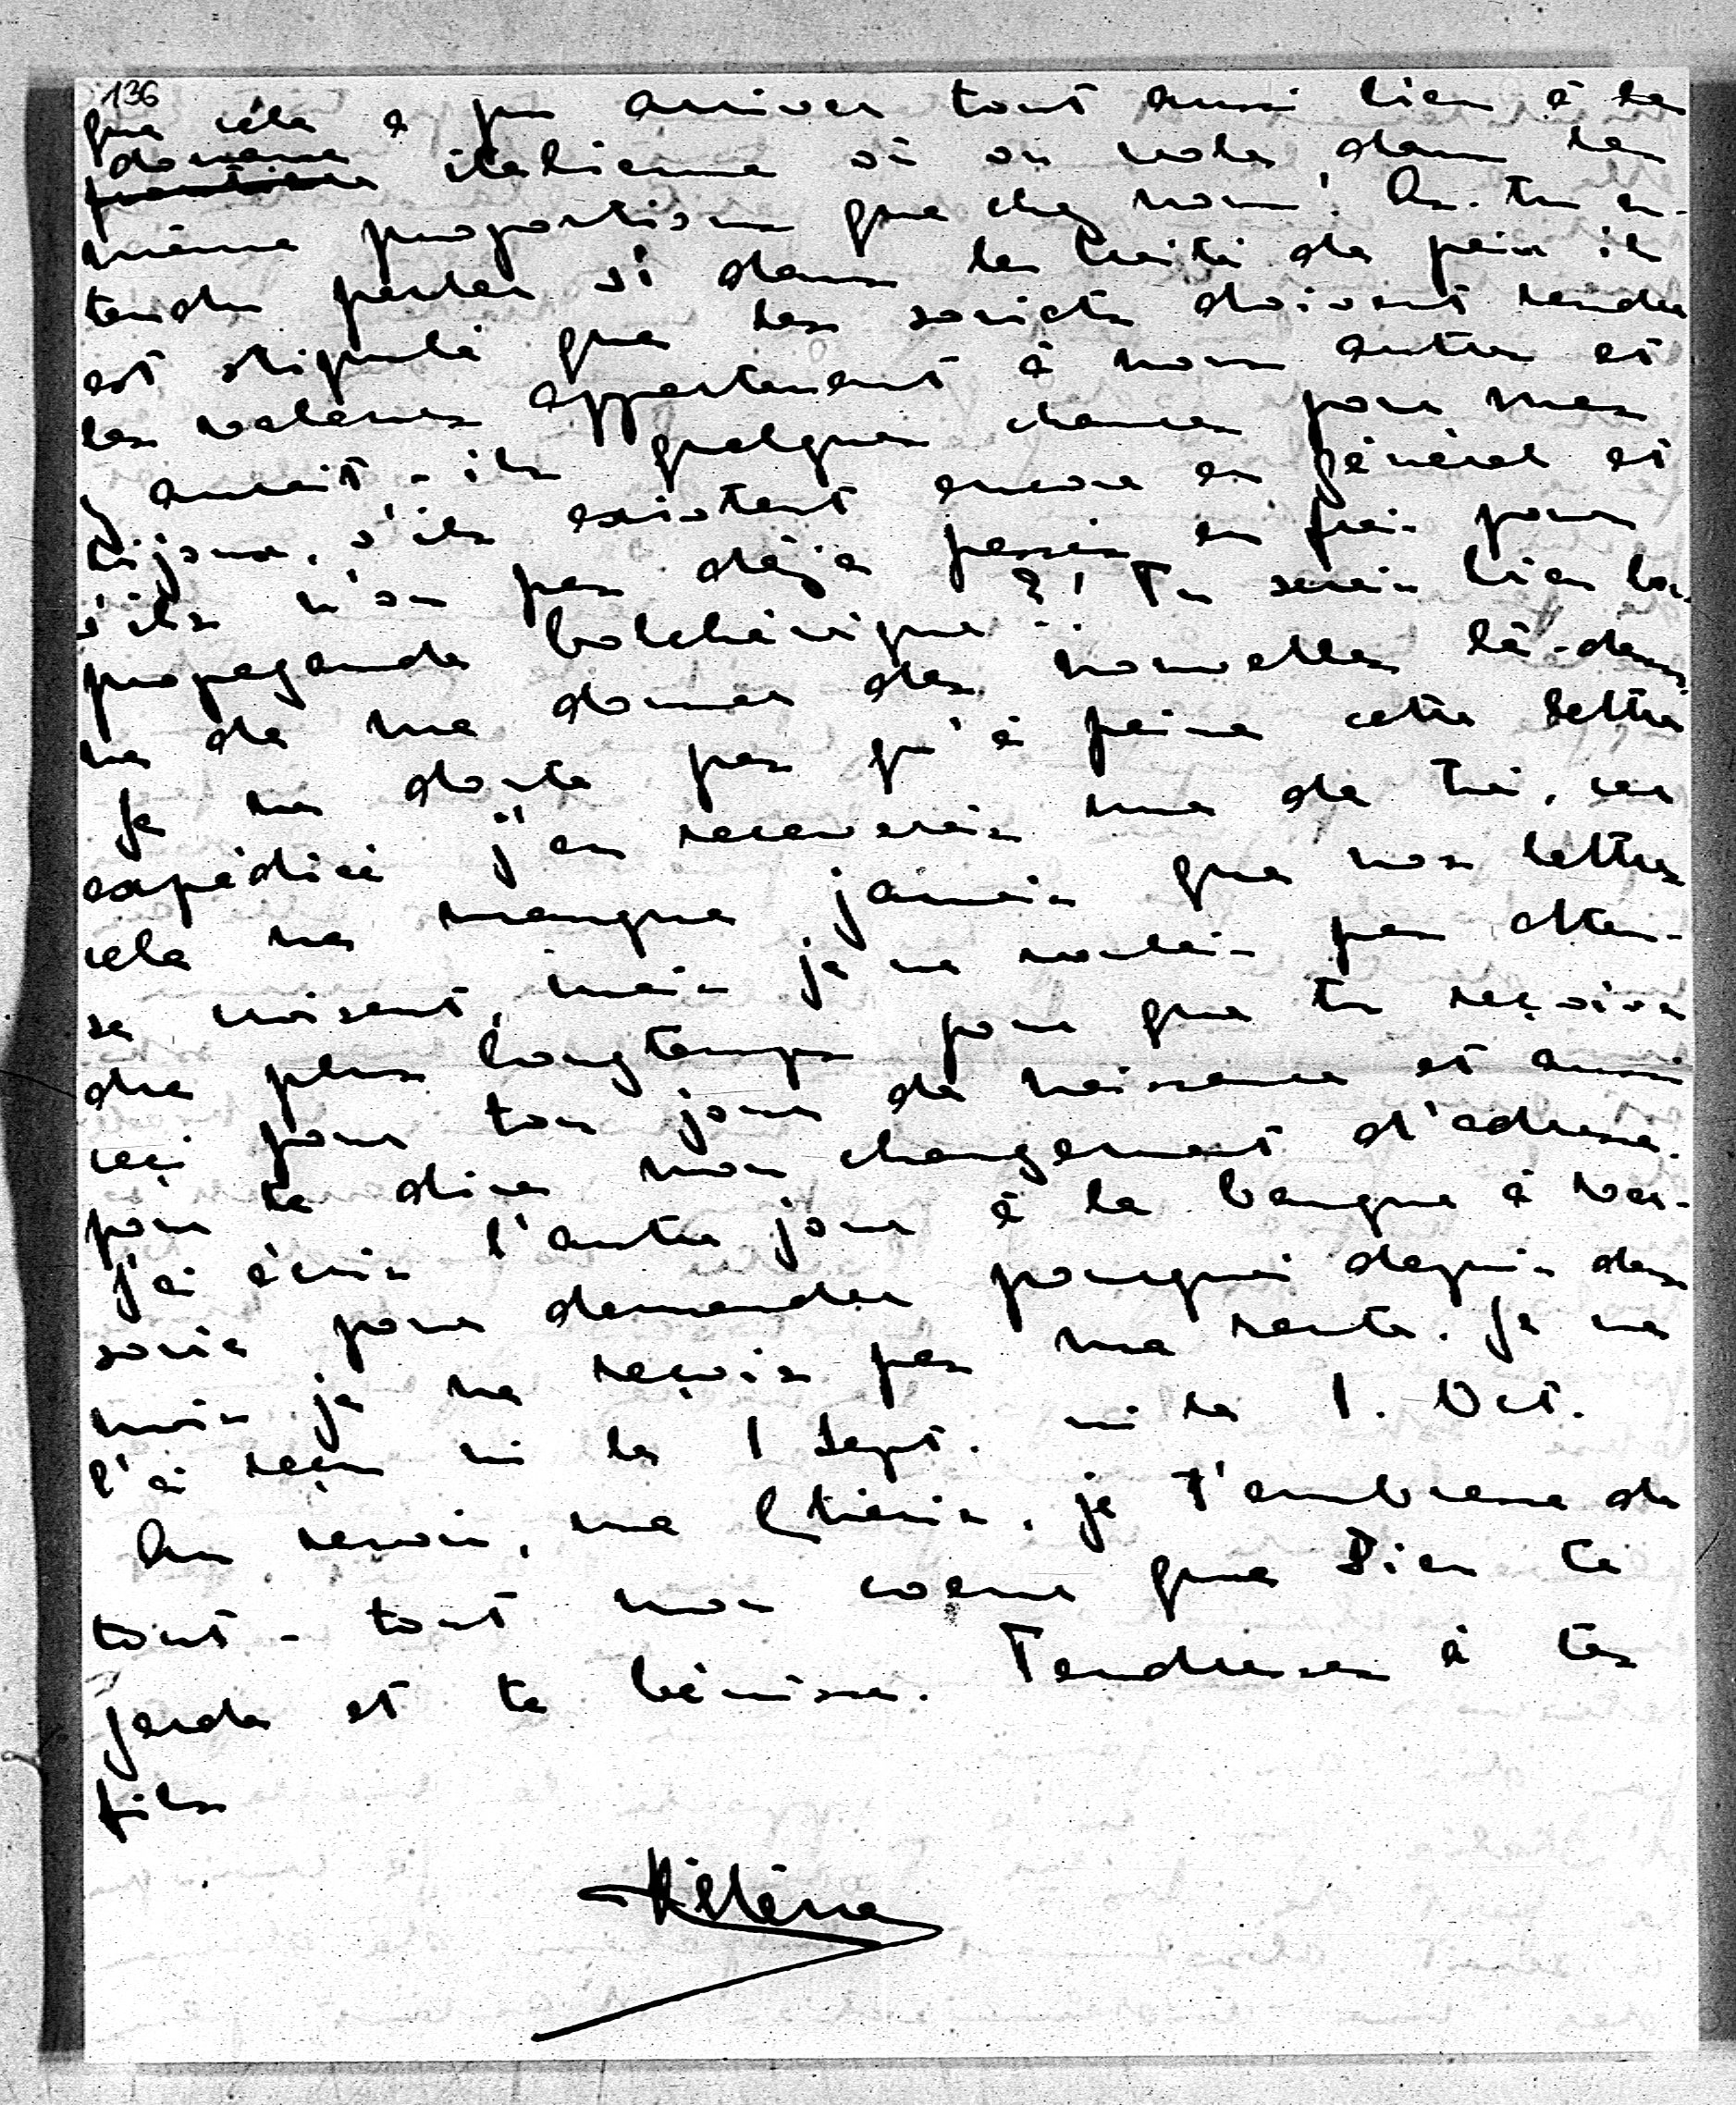 136
que cela a pu arriver tout aussi bien à la
douane
italienne où on vole dans les
même proportions que chez nous! As-tu en-
tendu parler si dans le traité de paix il
est stipulé que les soviets doivent rendre
les valeurs appartenant à nous autres et
y aurait-ils quelques chances pour mes
bijoux, s'ils existent encore en général et
s'ils n'on pas déjà passés en frais pour
propagande bolchévique ?! Tu serais bien bon-
ne de me donner des nouvelles là-dessus.
Je ne doute pas qu'à peine cette lettre
expédiée j'en recevrais une de toi, car
cela ne manque jamais que nos lettres
se croisent, mais je ne voulais pas atten-
dre plus longtemps pour que tu reçoive
ceci pour ton jour de naissance et aussi
pour te dire mon changement d'adresse.
J'ai écris l'autre jour à la banque à Var-
sovie pour demander pourquoi depuis deux
mois je ne reçois pas ma rente. Je ne
l'ai reçu ni le 1 Sept. ni le 1. Oct.
Au revoir, ma Chérie, je t'embrasse de
tout-tout mon coeur que Dieu te
garde et te bénisse. Tendresses à tes
fils
Hélène